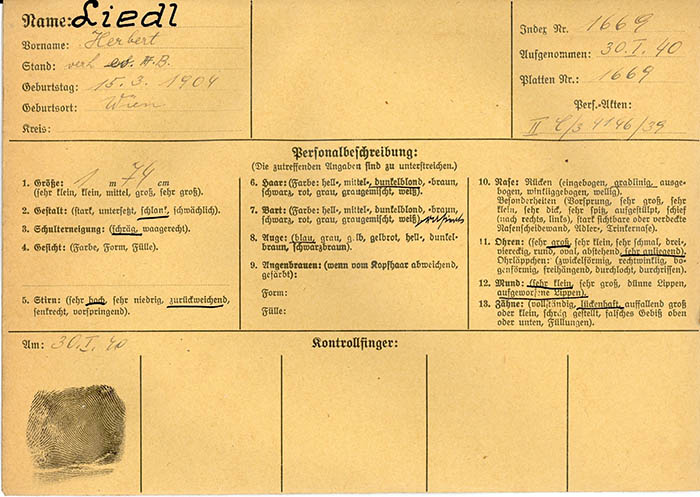 Name: Liedl
Vorname: Herbert
Stand: verh
Geburtstag: 15. 3. 1904
Geburtsort: Wien
Kreis:
Index Nr. 1669
Aufgenommen: 30. I. 40
Platten Nr.: 1669
Pers.-Akten:
II C/3 4146/39
Personalbeschreibung:
(Die zutreffenden Angaben sind zu unterstreichen.)
1. Größe: 1 m 74 cm
(sehr klein, klein, mittel, groß, sehr groß).
2. Gestalt: (stark, untersetzt, schlank, schwächlich).
3. Schulterneigung: (schräg, waagerecht).
4. Gesicht: (Farbe, Form, Fülle).
5. Stirn: (sehr hoch, sehr niedrig, zurückweichend,
senkrecht, vorspringend).
6. Haar: (Farbe: hell-, mittel-, dunkelblond, -braun,
schwarz, rot, grau, graugemischt, weiß).
7. Bart: (Farbe: hell-, mittel-, dunkelblond, -braun,
schwarz, rot, grau, graugemischt, weiß)
8. Auge: (blau, grau, gelb, gelbrot, hell-, dunkel-
braun, schwarzbraun).
9. Augenbrauen: (wenn vom Kopfhaar abweichend,
gefärbt):
Form:
Fülle:
10. Nase: Rücken (eingebogen, gradlinig, ausge-
bogen, winkliggebogen, wellig).
Besonderheiten (Vorsprung, sehr groß, sehr
klein, sehr dick, sehr spitz, aufgestülpt, schief
(nach rechts, links), stark sichtbare oder verdeckte
Nasenscheidewand, Adler-, Trinkernase).
11. Ohren: (sehr groß, sehr klein, sehr schmal, drei-
viereckig, rund, oval, abstehend, sehr anliegend).
Ohrläppchen: (zwickelförmig, rechtwinklig, bo-
genförmig, freihängend, durchlocht, durchrissen).
12. Mund: (sehr klein, sehr groß, dünne Lippen,
aufgeworfene Lippen).
13. Zähne: (vollständig, lückenhaft, auffallend groß
oder klein, schräg gestellt, falsches Gebiß oben
oder unten, Füllungen).
Am: 30. I. 40
Kontrollfinger: